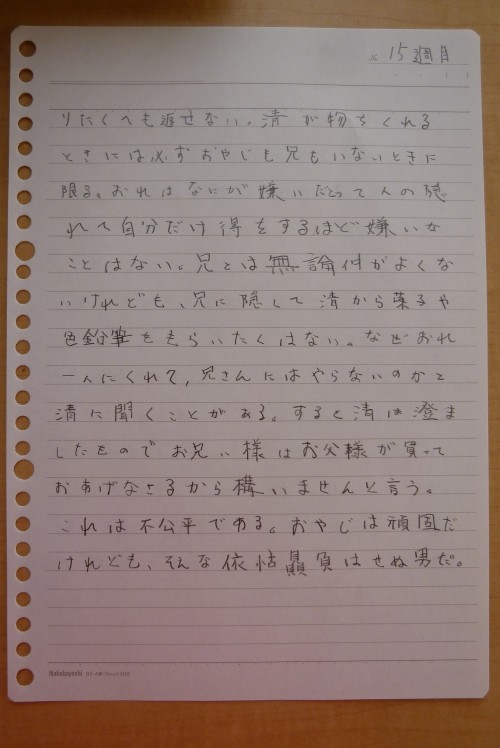 15週目
りたくても返せない。清が物をくれる
ときには必ずおやじも兄もいないときに
限る。おれはなにが嫌いだって人の隠
れて自分だけ得をするほど嫌いな
ことはない。兄とは無論仲がよくな
いけれども、兄に隠して清から菓子や
色鉛筆をもらいたくはない。なぜおれ
一人にくれて、兄さんにはやらないのかと
清に聞くことがある。すると清は澄ま
したものでお兄い様はお父様が買って
おあげなさるから構いませんと言う。
これは不公平である。おやじは頑固だ
けれども、そんな依怙贔負はせぬ男だ。
Nakabayashi